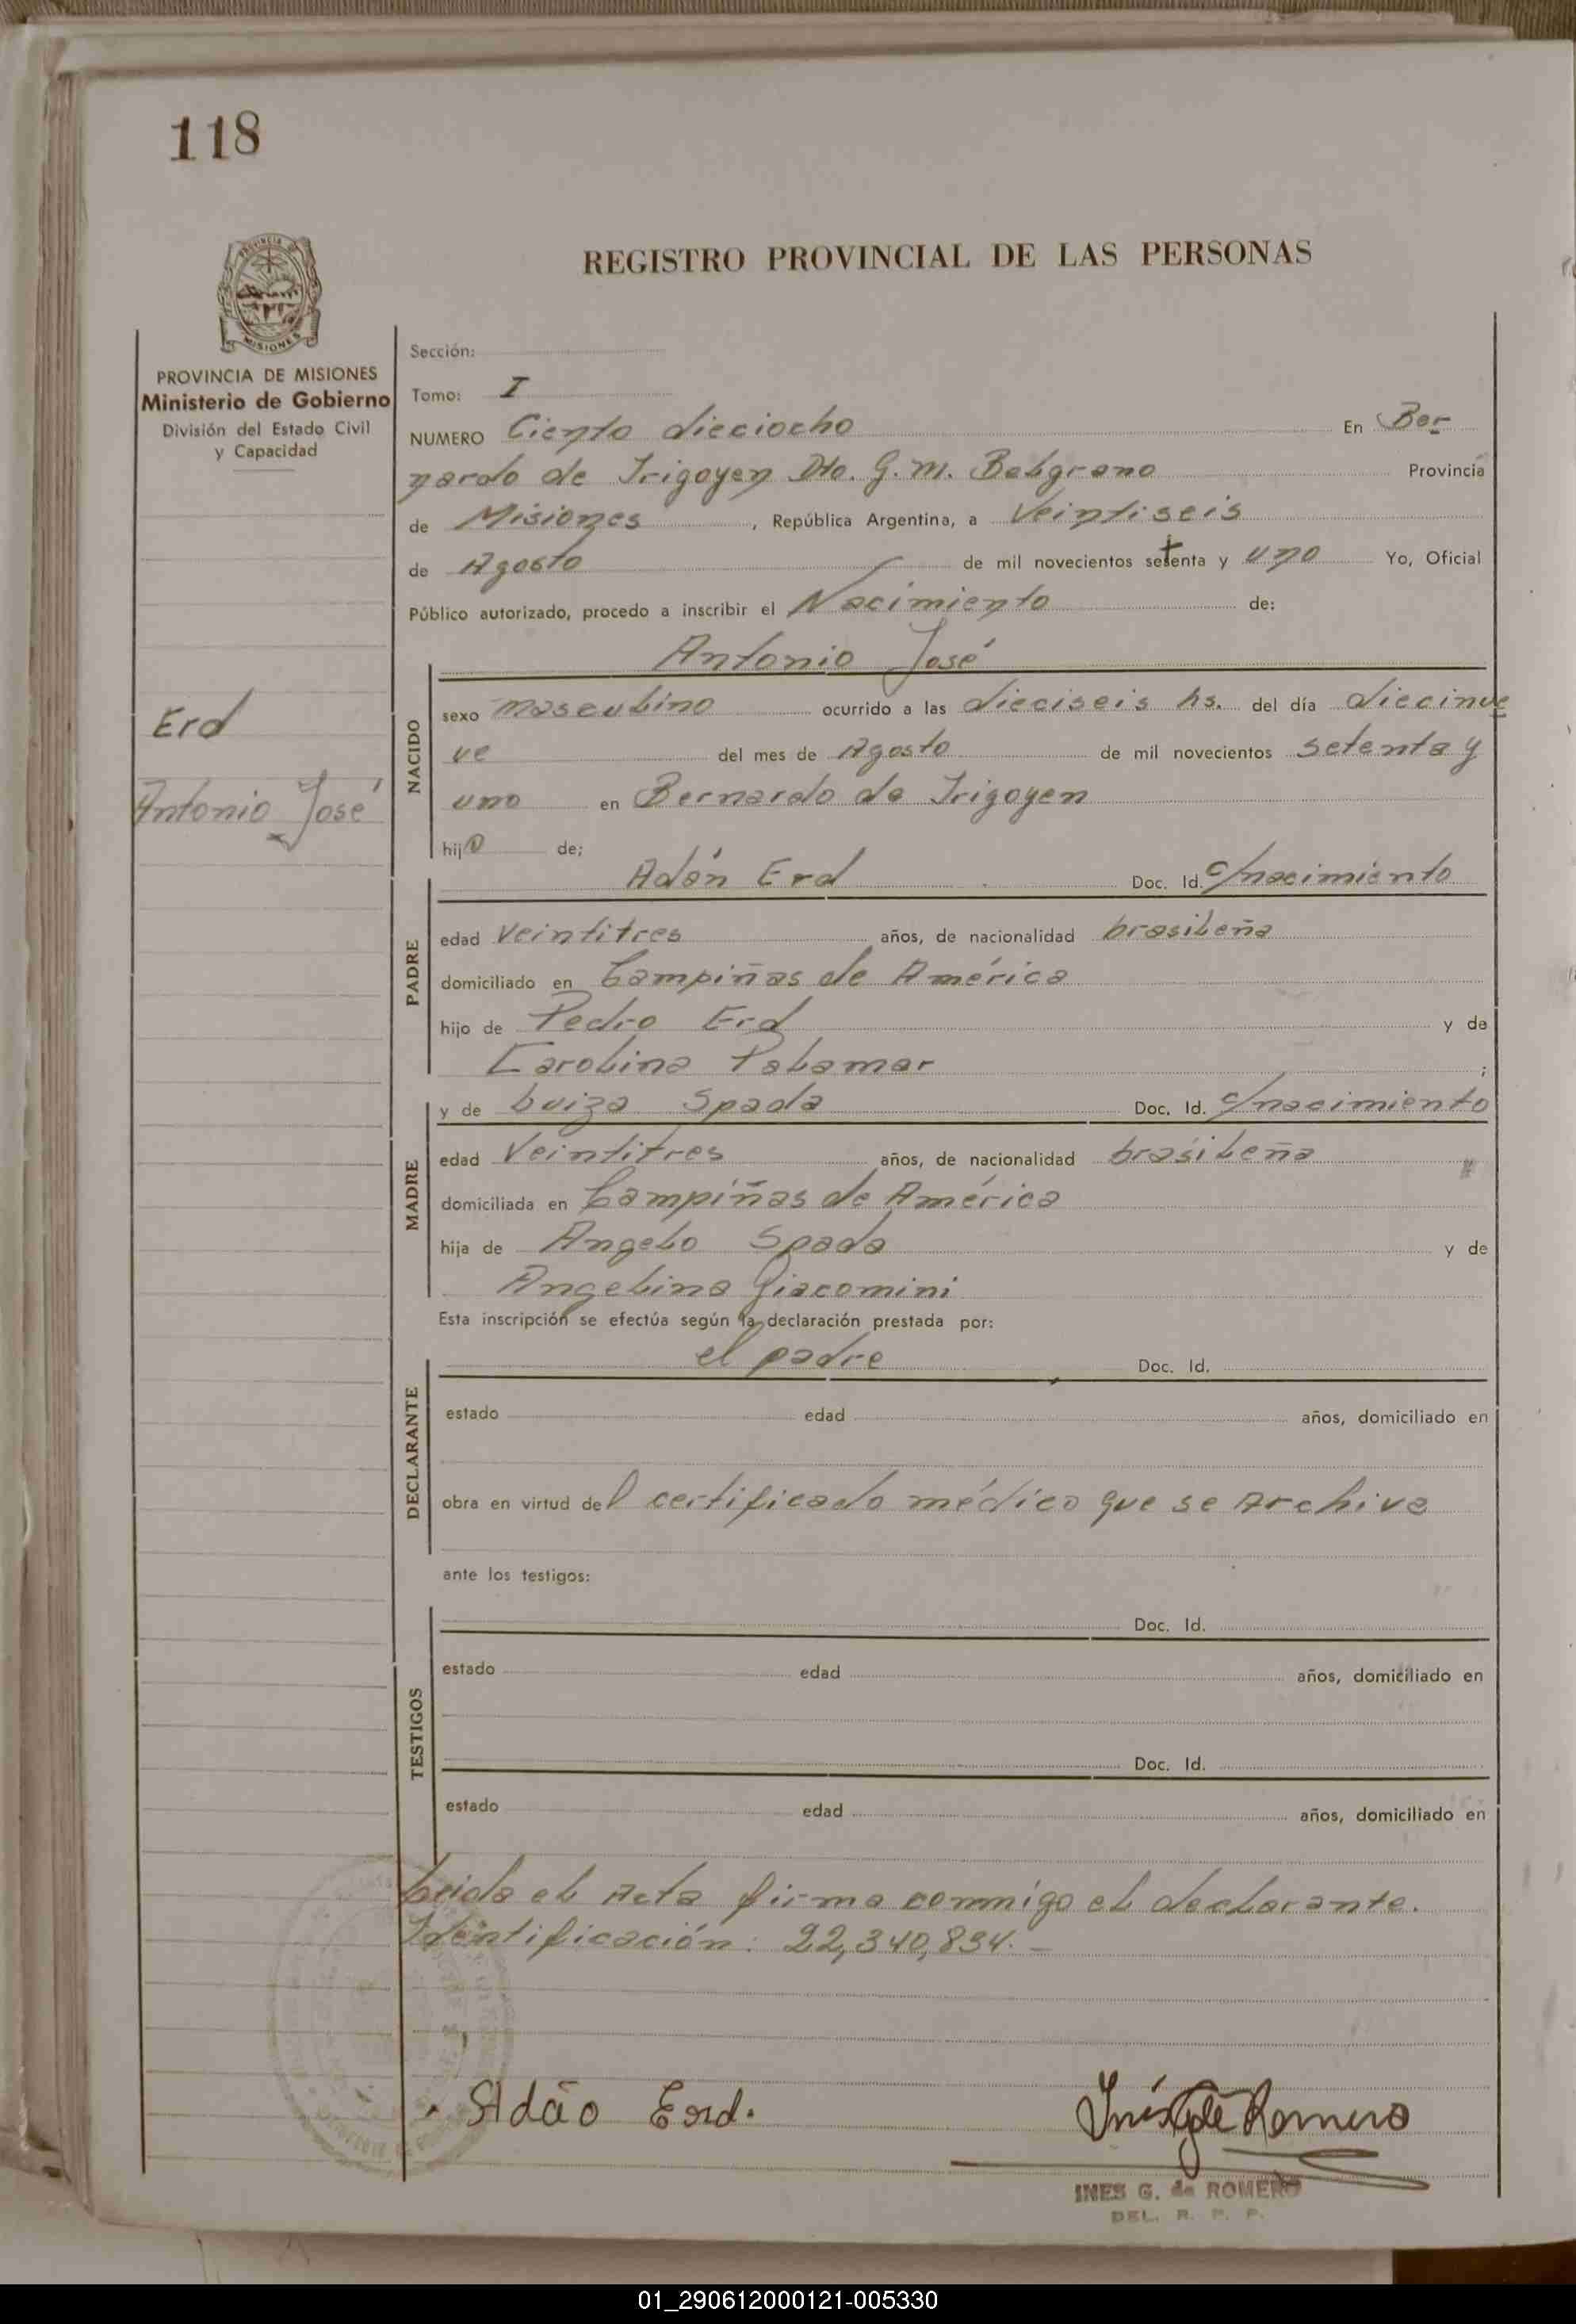 118
REGISTRO PROVINCIAL DE LAS PERSONAS
PROVINCIA DE MISIONES
MISIONES
PROVINCIA DE MISIONES
Ministerio de Gobierno
División del Estado Civil
y Capacidad
Erd
Antonio José
Sección:
Tomo: I
NUMERO Ciento dieciocho En Ber
nardo de Irigoyen Dto. G. M. Belgrano Provincia
de Misiones, República Argentina, a Veintiseis
de Agosto de mil novecientos setenta y uno Yo, Oficial
Público autorizado, procedo a inscribir el Nacimiento de:
Antonio José
NACIDO
sexo masculino ocurrido a las dieciseis hs. del día diecinue
ve del mes de Agosto de mil novecientos setenta y
uno en Bernardo de Irigoyen
hijo de;
PADRE
Adán Erd Doc. Id. c/nacimiento
edad Veintitres años, de nacionalidad brasileña
domiciliado en Campiñas de América
hijo de Pedro Erd y de
Carolina Palamar ;
MADRE
y de Luiza Spada Doc. Id. c/nacimiento
edad Veintitres años, de nacionalidad brasileña
domiciliada en Campiñas de América
hija de Angelo Spada y de
Angelina Giacomini
Esta inscripción se efectúa según la declaración prestada por:
DECLARANTE
el padre Doc. Id.
estado edad años, domiciliado en
obra en virtud del certificado médico que se Archiva
ante los testigos:
TESTIGOS
Doc. Id.
estado edad años, domiciliado en
Doc. Id.
estado edad años, domiciliado en
Leida el Acta firma conmigo el declarante.
Identificación: 22,340,834.-
Adão Erd.
Inés G de Romero
INES G. de ROMERO
DEL. R. P. P.
01_290612000121-005330